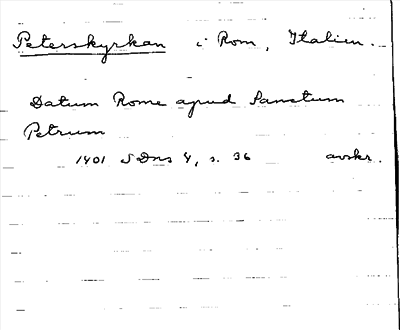 Peterskyrkan i Rom, Italien.
Datum Rome apud Sanctum
Petrum
1401 SDns 4, s. 36 avskr.